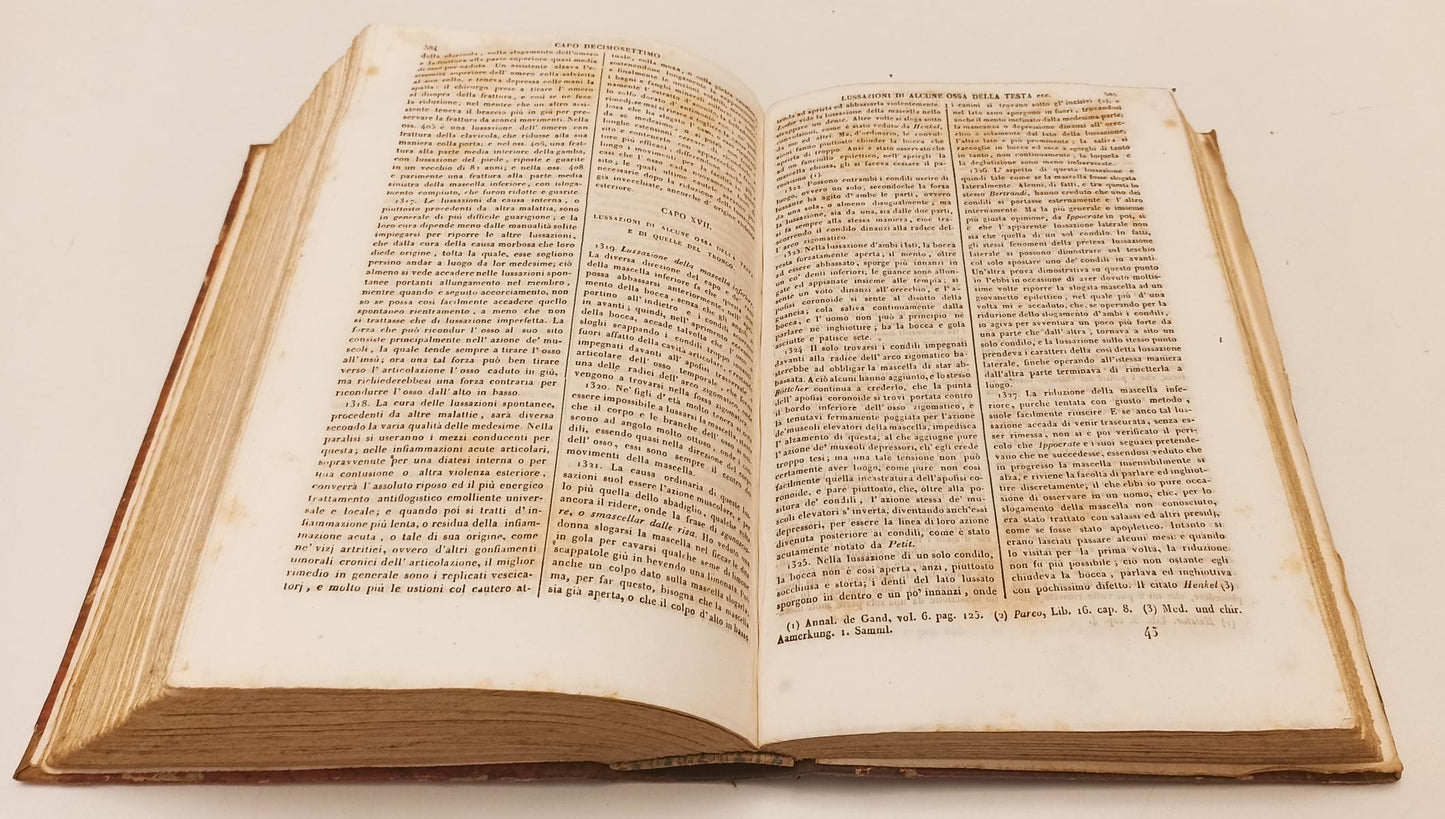 584
CAPO DECIMOSETTIMO
della clavicola, collo slogamento dell'omero
e la frattura alla parte superiore quasi media
di esso per caduta. Un assistente alzava l'e-
stremità superiore dell' omero colla salvietta
al suo collo, e teneva depressa colle mani la
spalla: il chirurgo prese a tirare l' omero
al disopra della frattura, e così se ne fece
la riduzione, nel mentre che un altro assi-
stente teneva il braccio più in giù per pre-
servare la frattura da sconci movimenti. Nella
oss. 405 è una lussazione dell' omero con
frattura della clavicola, che ridusse alla sua
maniera colla porta; e nel oss. 406, una frat-
tura alla parte media inferiore della gamba,
con lussazione del piede, riposte e guarite
in un vecchio di 82 anni; e nella oss. 408
è parimente una frattura alla parte media
sinistra della mascella inferiore, con isloga-
mento compiuto, che furon ridotte e guarite.
1317. Le lussazioni da causa interna, o
piuttosto procedenti da altra malattia, sono
in generale di più difficile guarigione; e la
loro cura dipende meno dalle manualità solite
impiegarsi per riporre le altre lussazioni,
che dalla cura della causa morbosa che loro
diede origine, tolta la quale, esse sogliono
persino andar a luogo da lor medesime; ciò
almeno si vede accadere nelle lussazioni spon-
tanee portanti allungamento nel membro,
mentre quando è seguito accorciamento, non
so se possa così facilmente accadere quello
spontaneo rientramento, a meno che non
si trattasse che di lussazione imperfetta. La
forza che può ricondur l'osso al suo sito
consiste principalmente nell' azione de' mu-
scoli, la quale tende sempre a tirare l'osso
all'insù; ora una tal forza può ben tirare
verso l' articolazione l'osso caduto in giù,
ma richiederebbesi una forza contraria per
ricondurre l'osso dall'alto in basso.
1318. La cura delle lussazioni spontanee,
procedenti da altre malattie, sarà diversa
secondo la varia qualità delle medesime. Nella
paralisi si useranno i mezzi conducenti per
questa; nelle infiammazioni acute articolari,
sopravvenute per una diatesi interna o per
una contusione o altra violenza esteriore,
converrà l' assoluto riposo ed il più energico
trattamento antiflogistico emolliente univer-
sale e locale; e quando poi si tratti d'in-
fiammazione più lenta, o residua della infiam-
mazione acuta, o tale di sua origine, come
ne' vizj artritici, ovvero d'altri gonfiamenti
umorali cronici dell' articolazione, il miglior
rimedio in generale sono i replicati vescica-
torj, e molto più le ustioni col cautero at-
tuale, colla moxa, o colla
sostenendone lungamente la
e finalmente le unzioni
i bagni e fanghi minerali
tamente l'estratto di
lo zolfo dorato d'antimonio,
rimedj, se mai si riesce a
bosa che ha slogato
da sè medesimo,
lunghe estensioni,
sito e contenervelo
tore più efficace,
luogo i movimenti
così che l' osso
sito; le quali ultime
necessarie dopo la riduzione delle
già invecchiate, ancorchè d' origine
esteriore.
CAPO XVII.
LUSSAZIONI DI ALCUNE OSSA DELLA TESTA
E DI QUELLE DEL TRONCO
1319. Lussazione della mascella inferiore.
La diversa direzione del capo, de'
della mascella inferiore fa che
possa abbassarsi anteriormente, nell'
mento della bocca, senza che gli angoli
portino all' indietro e i condili
in avanti; quindi, nell' aprimento
bocca, accade talvolta che i
sloghi scappando i condili troppo
fuori affatto della cavità articolare, e restano
impegnati davanti all' apofisi trasversale
articolare dell' osso temporale, che
una delle radici dell' arco zigomatico,
vengono a trovarsi nella fossa zigomatica.
1320. Ne' figli d' età molto tenera sembra
essere impossibile a lussarsi la mascella, perchè
che il corpo e le branche dell' osso si
sono ad angolo molto ottuso, e i con-
dili, essendo quasi nella direzione del corpo
dell' osso, essi sono sempre il centro dei
movimenti della mascella.
1321. La causa ordinaria di queste lus-
sazioni suol essere l'azione muscolare, per
lo più quella dello sbadiglio, qualche volta
ancora il ridere, onde la frase di sganasciar-
re, o smascellar dalle risa. Ho veduto una
donna slogarsi la mascella nel ficcar le dita
in gola per cavarsi qualche seme di limone
scappatole giù in bevendo una limonata. Può
anche un colpo dato sulla mascella slogarla,
ma, per far questo, bisogna che la mascella
sia già aperta, o che il colpo d'alto in basso
LUSSAZIONI DI ALCUNE OSSA DELLA TESTA ecc.
585
tenda ad aprirla ed abbassarla violentemente.
Loder vide la lussazione della mascella nello
strappare un dente. Altre volte si sloga sotto
convulsioni, come è stato veduto da Henkel,
me ed altri. Ma, d'ordinario, le convul-
sioni fanno piuttosto chiuder la bocca che
aprirla di troppo. Anzi è stato osservato che
ad un fanciullo epilettico, nell' aprirgli la
mascella chiusa, gli si faceva cessare il pa-
rosismo (1).
1322. Possono entrambi i condili uscire di
luogo, ovvero un solo, secondochè la forza
lussante ha agito d'ambe le parti, ovvero
da una sola, o almeno disugualmente, ma
la lussazione, sia da una, sia dalle due parti,
è sempre alla stessa maniera, cioè tra-
scorrendo il condilo dinanzi alla radice del-
l' arco zigomatico.
1323. Nella lussazione d'ambi i lati, la bocca
resta forzatamente aperta; il mento, oltre
ad essere abbassato, sporge più innanzi in
un co' denti inferiori; le guance sono allun-
gate ed appianate insieme alle tempia; si
sente un voto dinanzi all'orecchio, e l'a-
pofisi coronoide si sente al disotto della
guancia; cola saliva continuamente dalla
bocca, e l' uomo non può a principio nè
parlare nè inghiottire; ha la bocca e gola
asciutte e patisce sete.
1324. Il solo trovarsi i condili impegnati
davanti alla radice dell'arco zigomatico ba-
sterebbe ad obbligar la mascella di star ab-
bassata. A ciò alcuni hanno aggiunto, e lo stesso
Böttcher continua a crederlo, che la punta
dell' apofisi coronoide si trovi portata contro
il bordo inferiore dell'osso zigomatico, e
là tenutavi fermamente poggiata per l'azione
de' muscoli elevatori della mascella, impedisca
l' alzamento di questa, al che aggiugne pure
l' azione de' muscoli depressori, ch' egli crede
troppo tesi; ma una tale tensione non può
certamente aver luogo, come pure non così
facilmente quella incastratura dell'apofisi co-
ronoide, e pare piuttosto, che, oltre alla po-
situra de' condili, l'azione stessa de' mu-
scoli elevatori s'inverta, diventando anch'essi
depressori, per essere la linea di loro azione
divenuta posteriore ai condili, come è stato
acutamente notato da Petit.
1325. Nella lussazione di un solo condilo,
la bocca non è così aperta, anzi, piuttosto
socchiusa e storta; i denti del lato lussato
sporgono in dentro e un po' innanzi, onde
i canini si trovano sotto gl' incisivi (2), e
nel lato sano sporgono in fuori, trovandosi
anche il mento inclinato dalla medesima parte;
la mancanza o depressione dinanzi all' orec-
chio è solamente dal lato della lussazione,
l'altro lato è più prominente; la saliva si
raccoglie in bocca ed esce a sgorghi di tanto
in tanto, non continuamente, la loquela e
la deglutizione sono meno imbarazzate.
1326. L' aspetto di questa lussazione è
quindi tale come se la mascella fosse slogata
lateralmente. Alcuni, di fatti, e tra questi lo
stesso Bertrandi, hanno creduto che uno dei
condili si portasse esternamente e l' altro
internamente. Ma la più generale e insieme
più giusta opinione, da Ippocrate in poi, si
è che l' apparente lussazione laterale non
sia che quella di un sol condilo. In fatti,
gli stessi fenomeni della pretesa lussazione
laterale si possono dimostrare sul teschio
col solo spostare uno de' condili in avanti.
Un'altra prova dimostrativa su questo punto
io l'ebbi in occasione di aver dovuto moltis-
sime volte riporre la slogata mascella ad un
giovanetto epilettico; nel quale più d' una
volta mi è accaduto, che, se operando per la
riduzione dello slogamento d'ambi i condili,
io agiva per avventura un poco più forte da
una parte che dall' altra, tornava a sito un
solo condilo, e la lussazione sullo stesso punto
prendeva i caratteri della così detta lussazione
laterale, finchè operando all'istessa maniera
dall'altra parte terminava di rimetterla a
luogo.
1327. La riduzione della mascella infe-
riore, purchè tentata con giusto metodo,
suole facilmente riuscire. E se anco tal lus-
sazione accada di venir trascurata, senza es-
sere rimessa, non si è poi verificato il peri-
colo che Ippocrate e i suoi seguaci pretende-
vano che ne succedesse, essendosi veduto che
in progresso la mascella insensibilmente si
alza, e riviene la facoltà di parlare ed inghiot-
tire discretamente, il che ebbi io pure occa-
sione di osservare in un uomo, che, per lo
slogamento della mascella non conosciuto,
era stato trattato con salassi ed altri presidj,
come se fosse stato apopletico. Intanto si
erano lasciati passare alcuni mesi e quando
lo visitai per la prima volta, la riduzione
non fu più possibile; ciò non ostante egli
chiudeva la bocca, parlava ed inghiottiva
con pochissimo difetto. Il citato Henkel (3)
(1) Annal. de Gand, vol. 6. pag. 125. (2) Pareo, Lib. 16. cap. 8. (3) Med. und chir.
Aamerkung. 1. Samml.
45